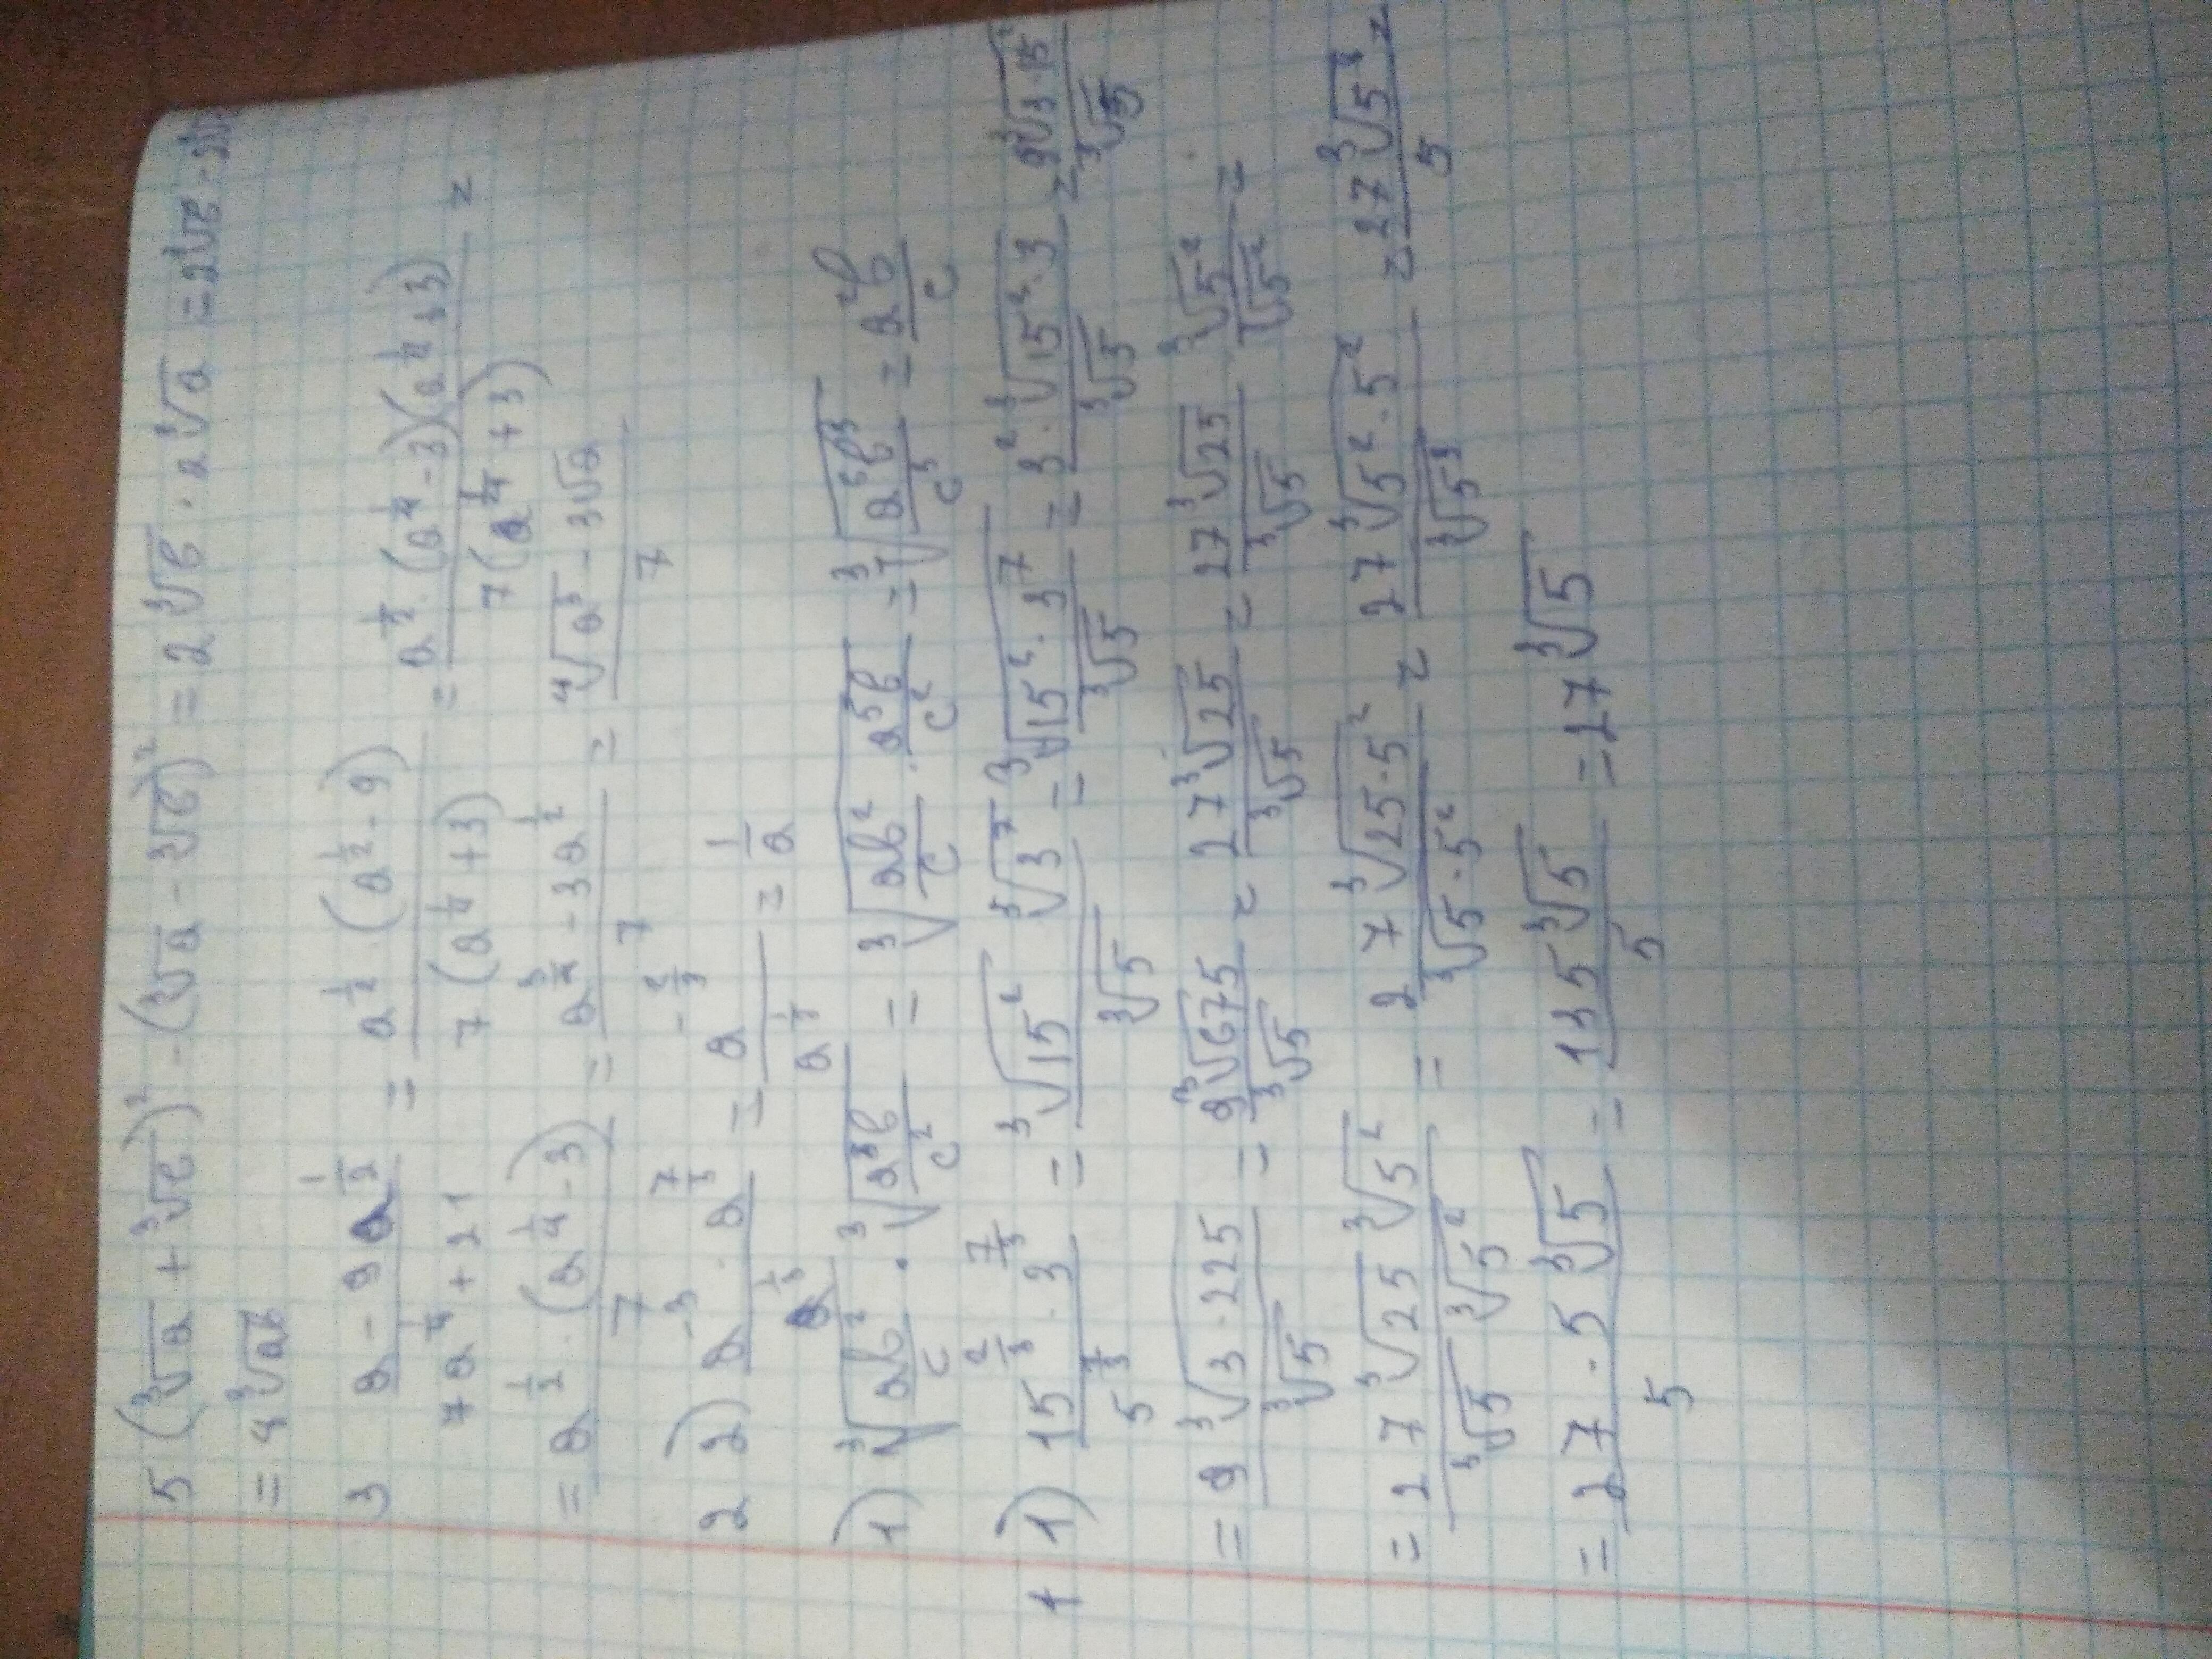 5 (∛a + ∛b)² - (∛a - ∛b)² = 2∛b · 2∛a = 2∛b · 2∛a
= 4∛ab
3 (a - 9a^(1/2))/(7a^(1/4) + 21) = (a^(1/2) (a^(1/2) - 9))/(7 (a^(1/4) + 3)) = (a^(1/2) · (a^(1/4) - 3)(a^(1/4) + 3))/(7 (a^(1/4) + 3)) =
= (a^(1/2) · (a^(1/4) - 3))/7 = (a^(3/4) - 3a^(1/2))/7 = (∜a³ - 3√a)/7
2 2) (a^(-3) · a^(7/3))/a^(1/3) = a^(-2/3)/a^(1/3) = 1/a
1) ∛(ab²/c) · ∛(a⁵b/c²) = ∛(ab²/c · a⁵b/c²) = ∛(a⁶b³/c³) = a²b/c
1 1) (15^(2/3) · 3^(7/3))/5^(1/3) = (∛15² ∛3⁷)/∛5 = ∛(15² · 3⁷)/∛5 = (3² · ∛(15² · 3))/∛5 = 9∛(3 · 15²)/∛5
= 9∛(3 · 225)/∛5 = 9∛675/∛5 = 27∛25/∛5 = 27∛25/∛5 · ∛5²/∛5² =
= (27∛25 ∛5²)/(∛5 ∛5²) = 27∛(25 · 5²)/∛(5 · 5²) = 27∛(5² · 5²)/∛5³ = 27∛5⁴/5 =
= (27 · 5∛5)/5 = 135∛5/5 = 27∛5